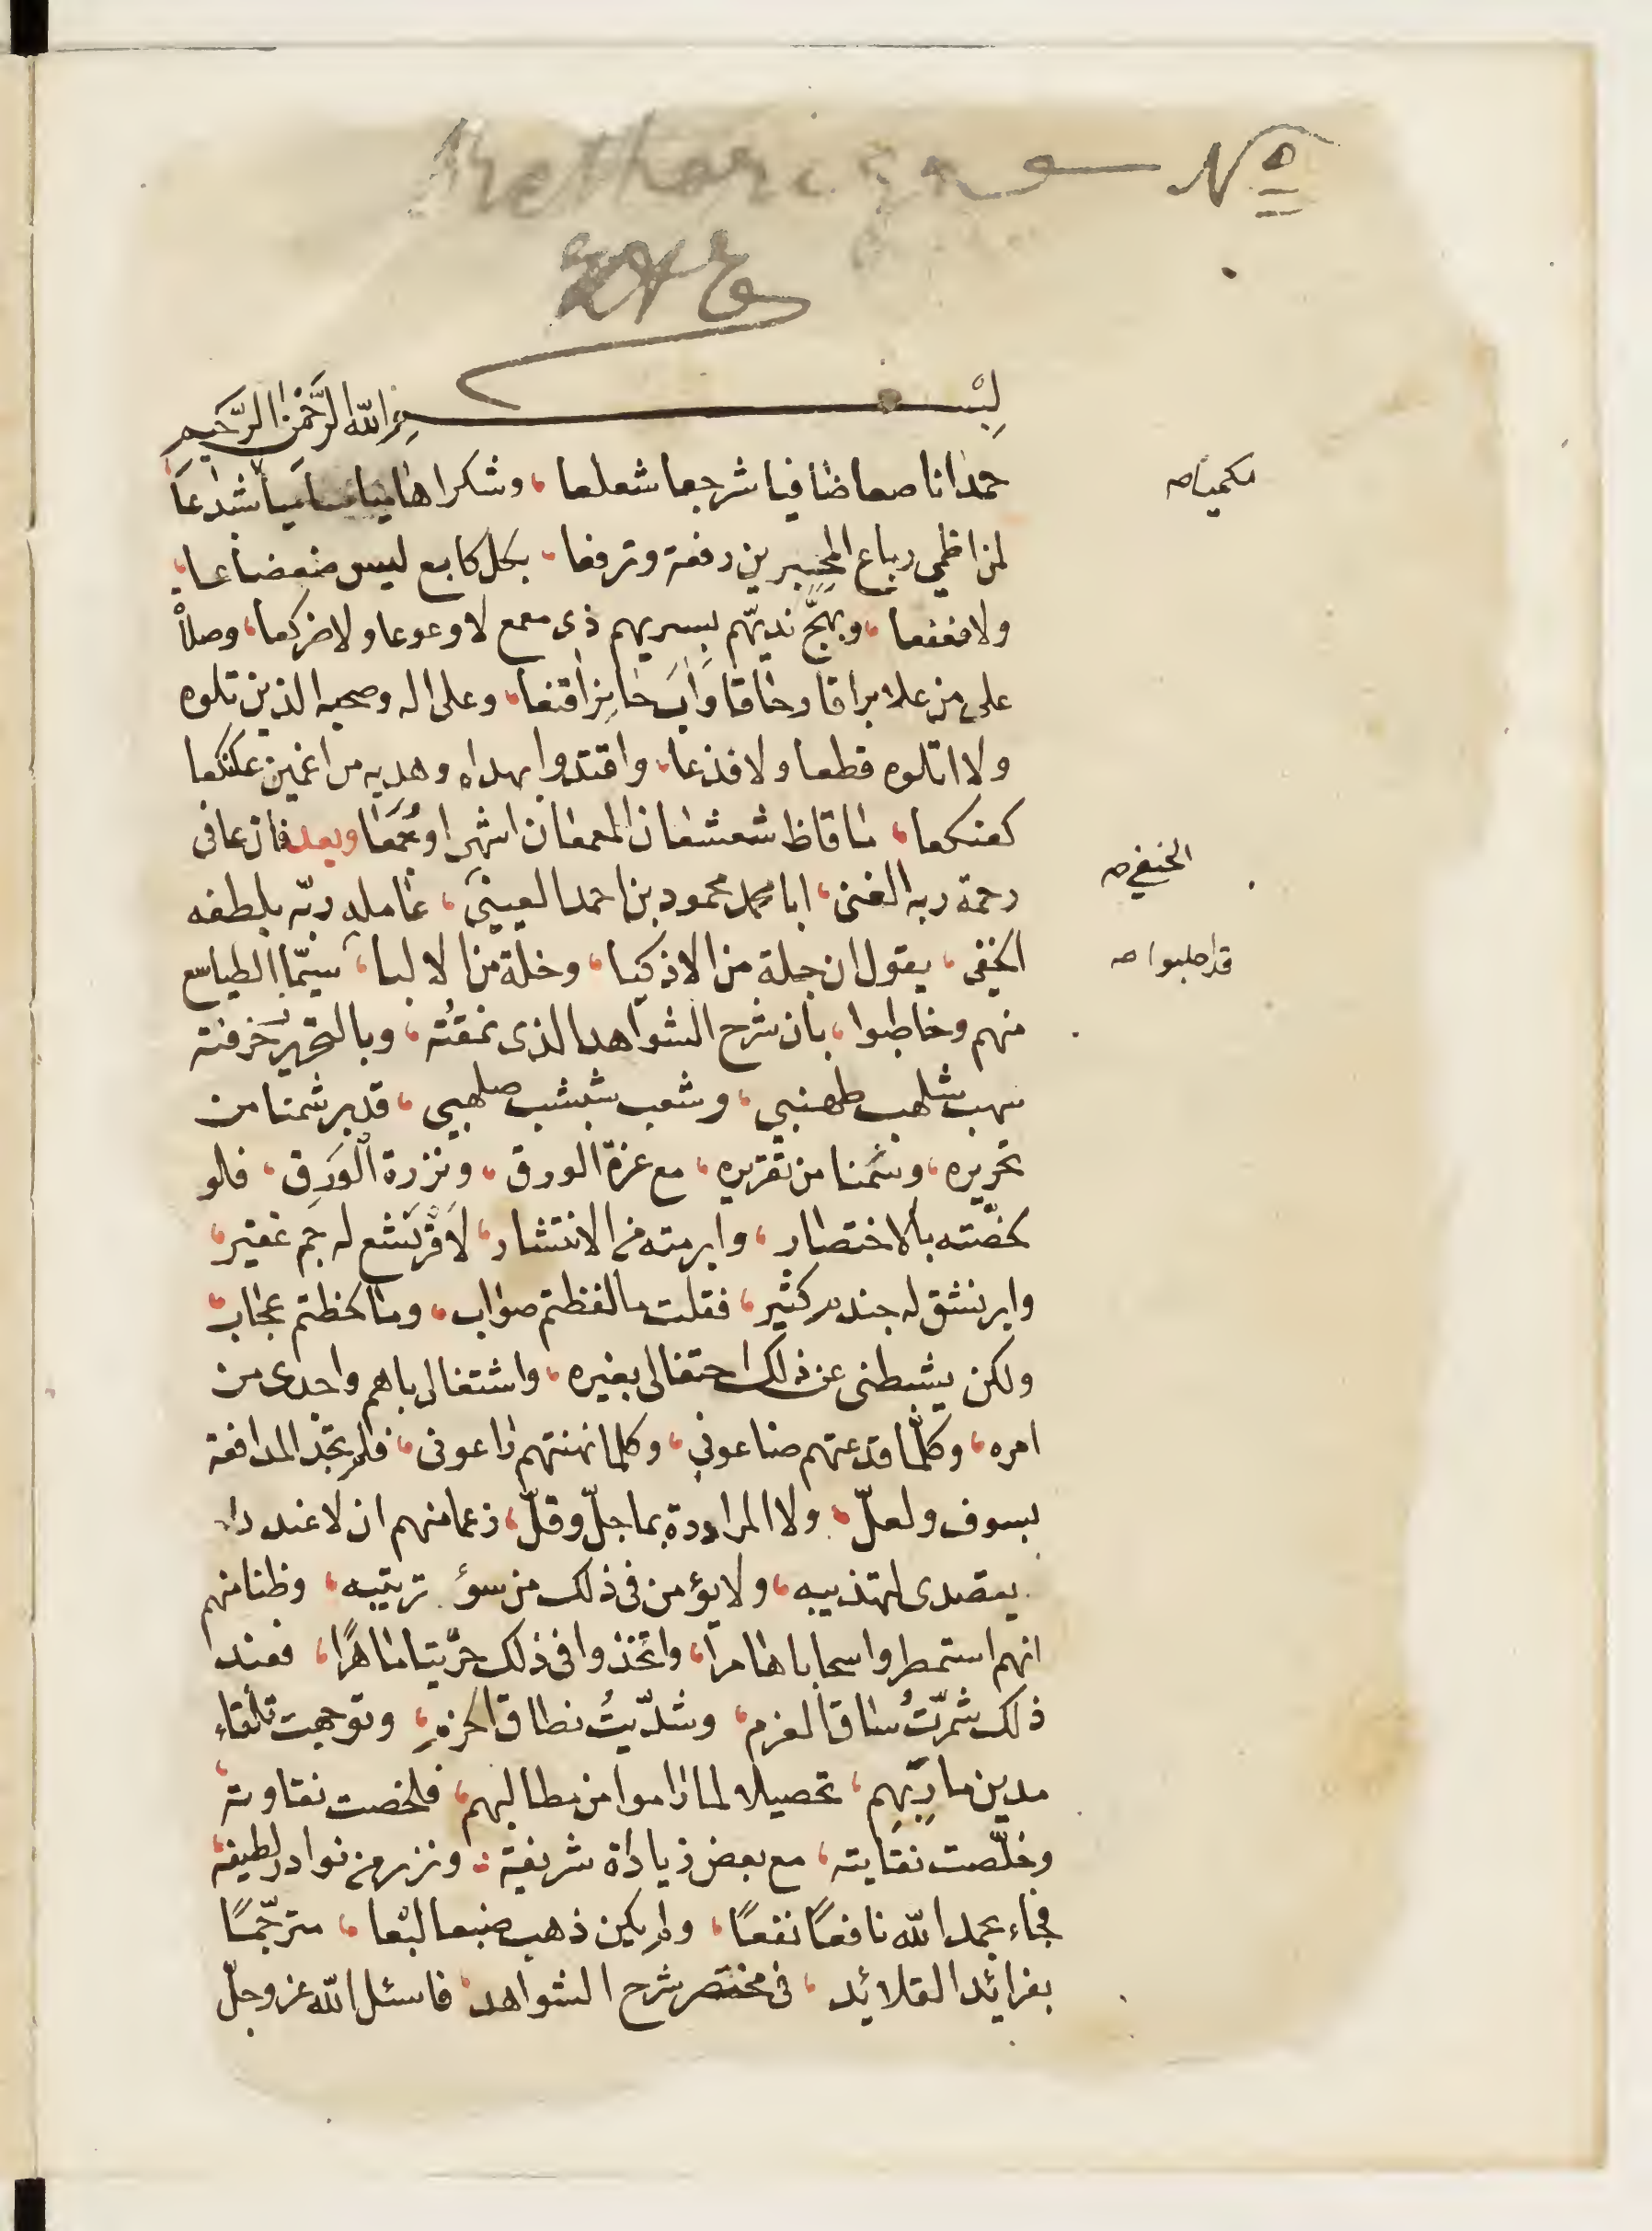 Nº
بسم الله الرحمن الرحيم
حمدا ناصعا ضافيا شرجعا شعلعا، وشكرا هاميا شدعا
لمن اظمي رباع المحبرين رفعة وترفعا، بكل كابع ليس ضعضاعا
ولا فغفعا، وبهّج نديّهم بسريهم ذى معمع لا وعوعا ولا ضركعا، وصلاْ
على من علا براقا وخاقا وَاٰبَ حايز اقنعا، وعلى اله وصحبه الذين تلوه
ولا اتلوه قطعا ولا فذعا، واقتدوا بهداه وهديه مراغمين عكنكعا
كعنكعا، ما قاظ شعشعان المعمعان اشهرا وجُمَعا وبعد فان عافى
رحمة ربه الغنى، ابا محمد محمود بن احمد العينىّ، عامله ربّه بلطفه
الخفى، يقول ان جلة من الاذكيا، وخلة من الالبا، سيّما الطياسع
منهم وخاطبوا، بان شرح الشواهد الذى نمقتُه، وبالتحرير زخرفته
سهب شلهب طهنبي، وشعب شبشب صلهبي، قد برشمنا من
تحريره، وشَمنا من تقريره، مع عزة الورق، ونزرة الوَرِق، فلو
لخصّته بالاختصار، وابرمته من الانتشار، لَاقْرَنْشع له جم غفير،
وابرنشق له جند كثير، فقلت ما لفظتم صواب، وما لحظتم عجاب،
ولكن يثبطنى عن ذلك احتفالى بغيره، واشتغالى باهم واجدى من
امره، وكلّما قدعتهم صاعونى، وكلما نهنهتهم راعونى، فلم تجد المدافعة
بسوف ولعلّ، ولا المراودة بما جلّ وقلّ، زعما منهم ان لا عند دا
يتصدى لتهذيبه، ولا يؤمن فى ذلك من سوٴ ترتيبه، وظنا منهم
انهم استمطروا سحابا هامرا، واتخذوا فى ذلك خرّيتا ماهرًا، فعند
ذلك شمّرّتُ ساق العزم، وشدّيتُ نطاق الحزم، وتوجهت تلقاء
مدين ماربِهِم، تحصيلا لما راموا من مطالبهم، فلخصت نقاوته،
وخلّصت نقايته، مع بعض زياداة شريفة، ونزر من نوادر لطيفة،
فجاء بحمد الله نافعًا نقعًا، ولم يكن ذهب ضبعا لبْعا، مترجّمًا
بفرائد القلائد، فى مختصر شرح الشواهد، فاسئل الله عز وجلّ
الحنفي صح
قد اجلبوا صح